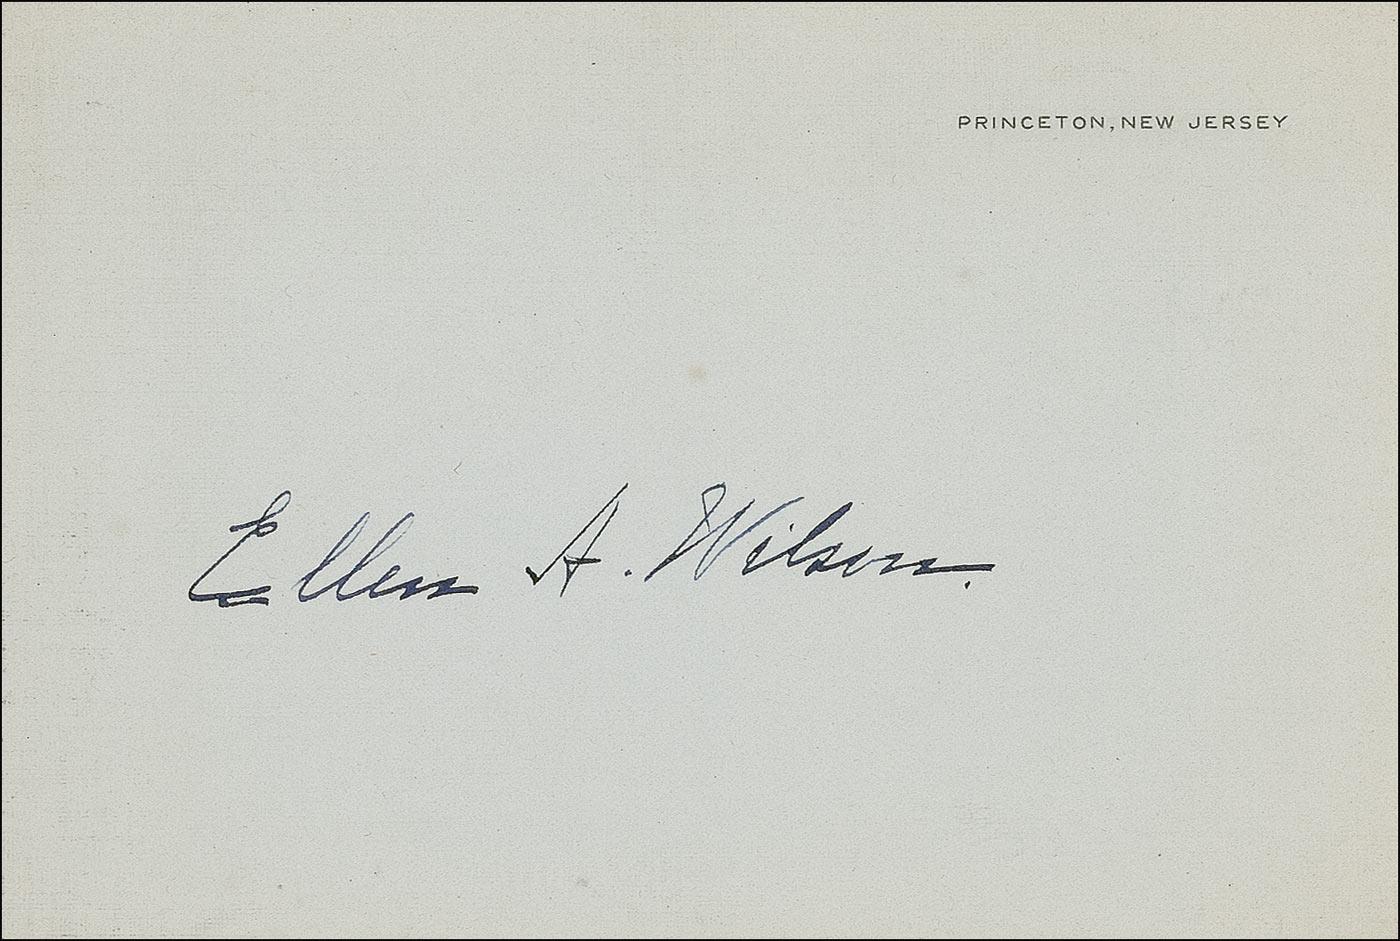 PRINCETON, NEW JERSEY
Ellen A. Wilson.